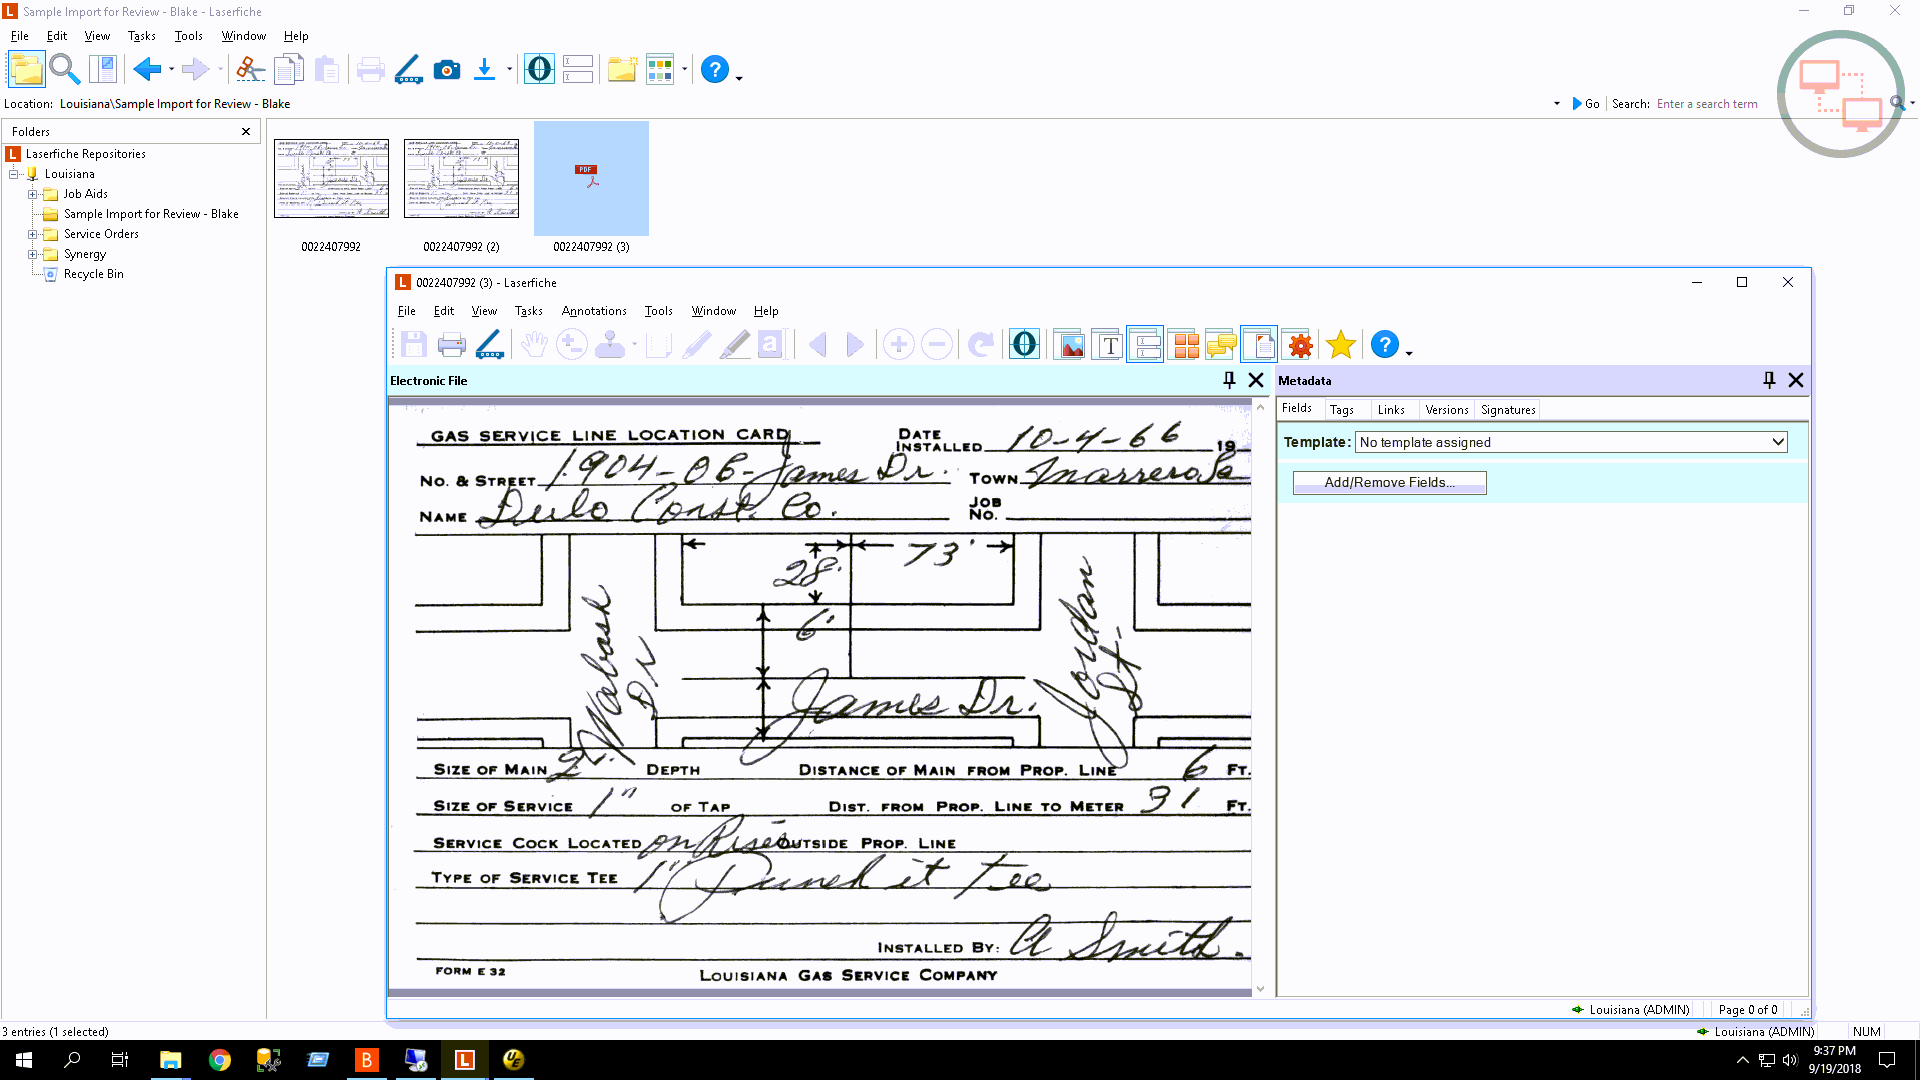 Sample Import for Review - Blake - Laserfiche
File Edit View Tasks Tools Window Help
Location: Louisiana\Sample Import for Review - Blake
Go Search: Enter a search term
Folders
Laserfiche Repositories
Louisiana
Job Aids
Sample Import for Review - Blake
Service Orders
Synergy
Recycle Bin
PDF
0022407992 0022407992 (2) 0022407992 (3)
0022407992 (3) - Laserfiche
File Edit View Tasks Annotations Tools Window Help
Electronic File
Metadata
Fields Tags Links Versions Signatures
Template: No template assigned
Add/Remove Fields...
GAS SERVICE LINE LOCATION CARD DATE INSTALLED 10-4-66 19
NO. & STREET 1904-06-James Dr. TOWN Marrero La
NAME Dulo Const. Co. JOB NO.
73'
28'
6'
Wabash Dr
Jordan St.
James Dr.
SIZE OF MAIN 2" DEPTH DISTANCE OF MAIN FROM PROP. LINE 6 FT.
SIZE OF SERVICE 1" OF TAP DIST. FROM PROP. LINE TO METER 31 FT.
SERVICE COCK LOCATED on Riser OUTSIDE PROP. LINE
TYPE OF SERVICE TEE 1" Punch it Tee
INSTALLED BY: A Smith.
FORM E 32 LOUISIANA GAS SERVICE COMPANY
Louisiana (ADMIN) Page 0 of 0
3 entries (1 selected) Louisiana (ADMIN) NUM
9:37 PM
9/19/2018